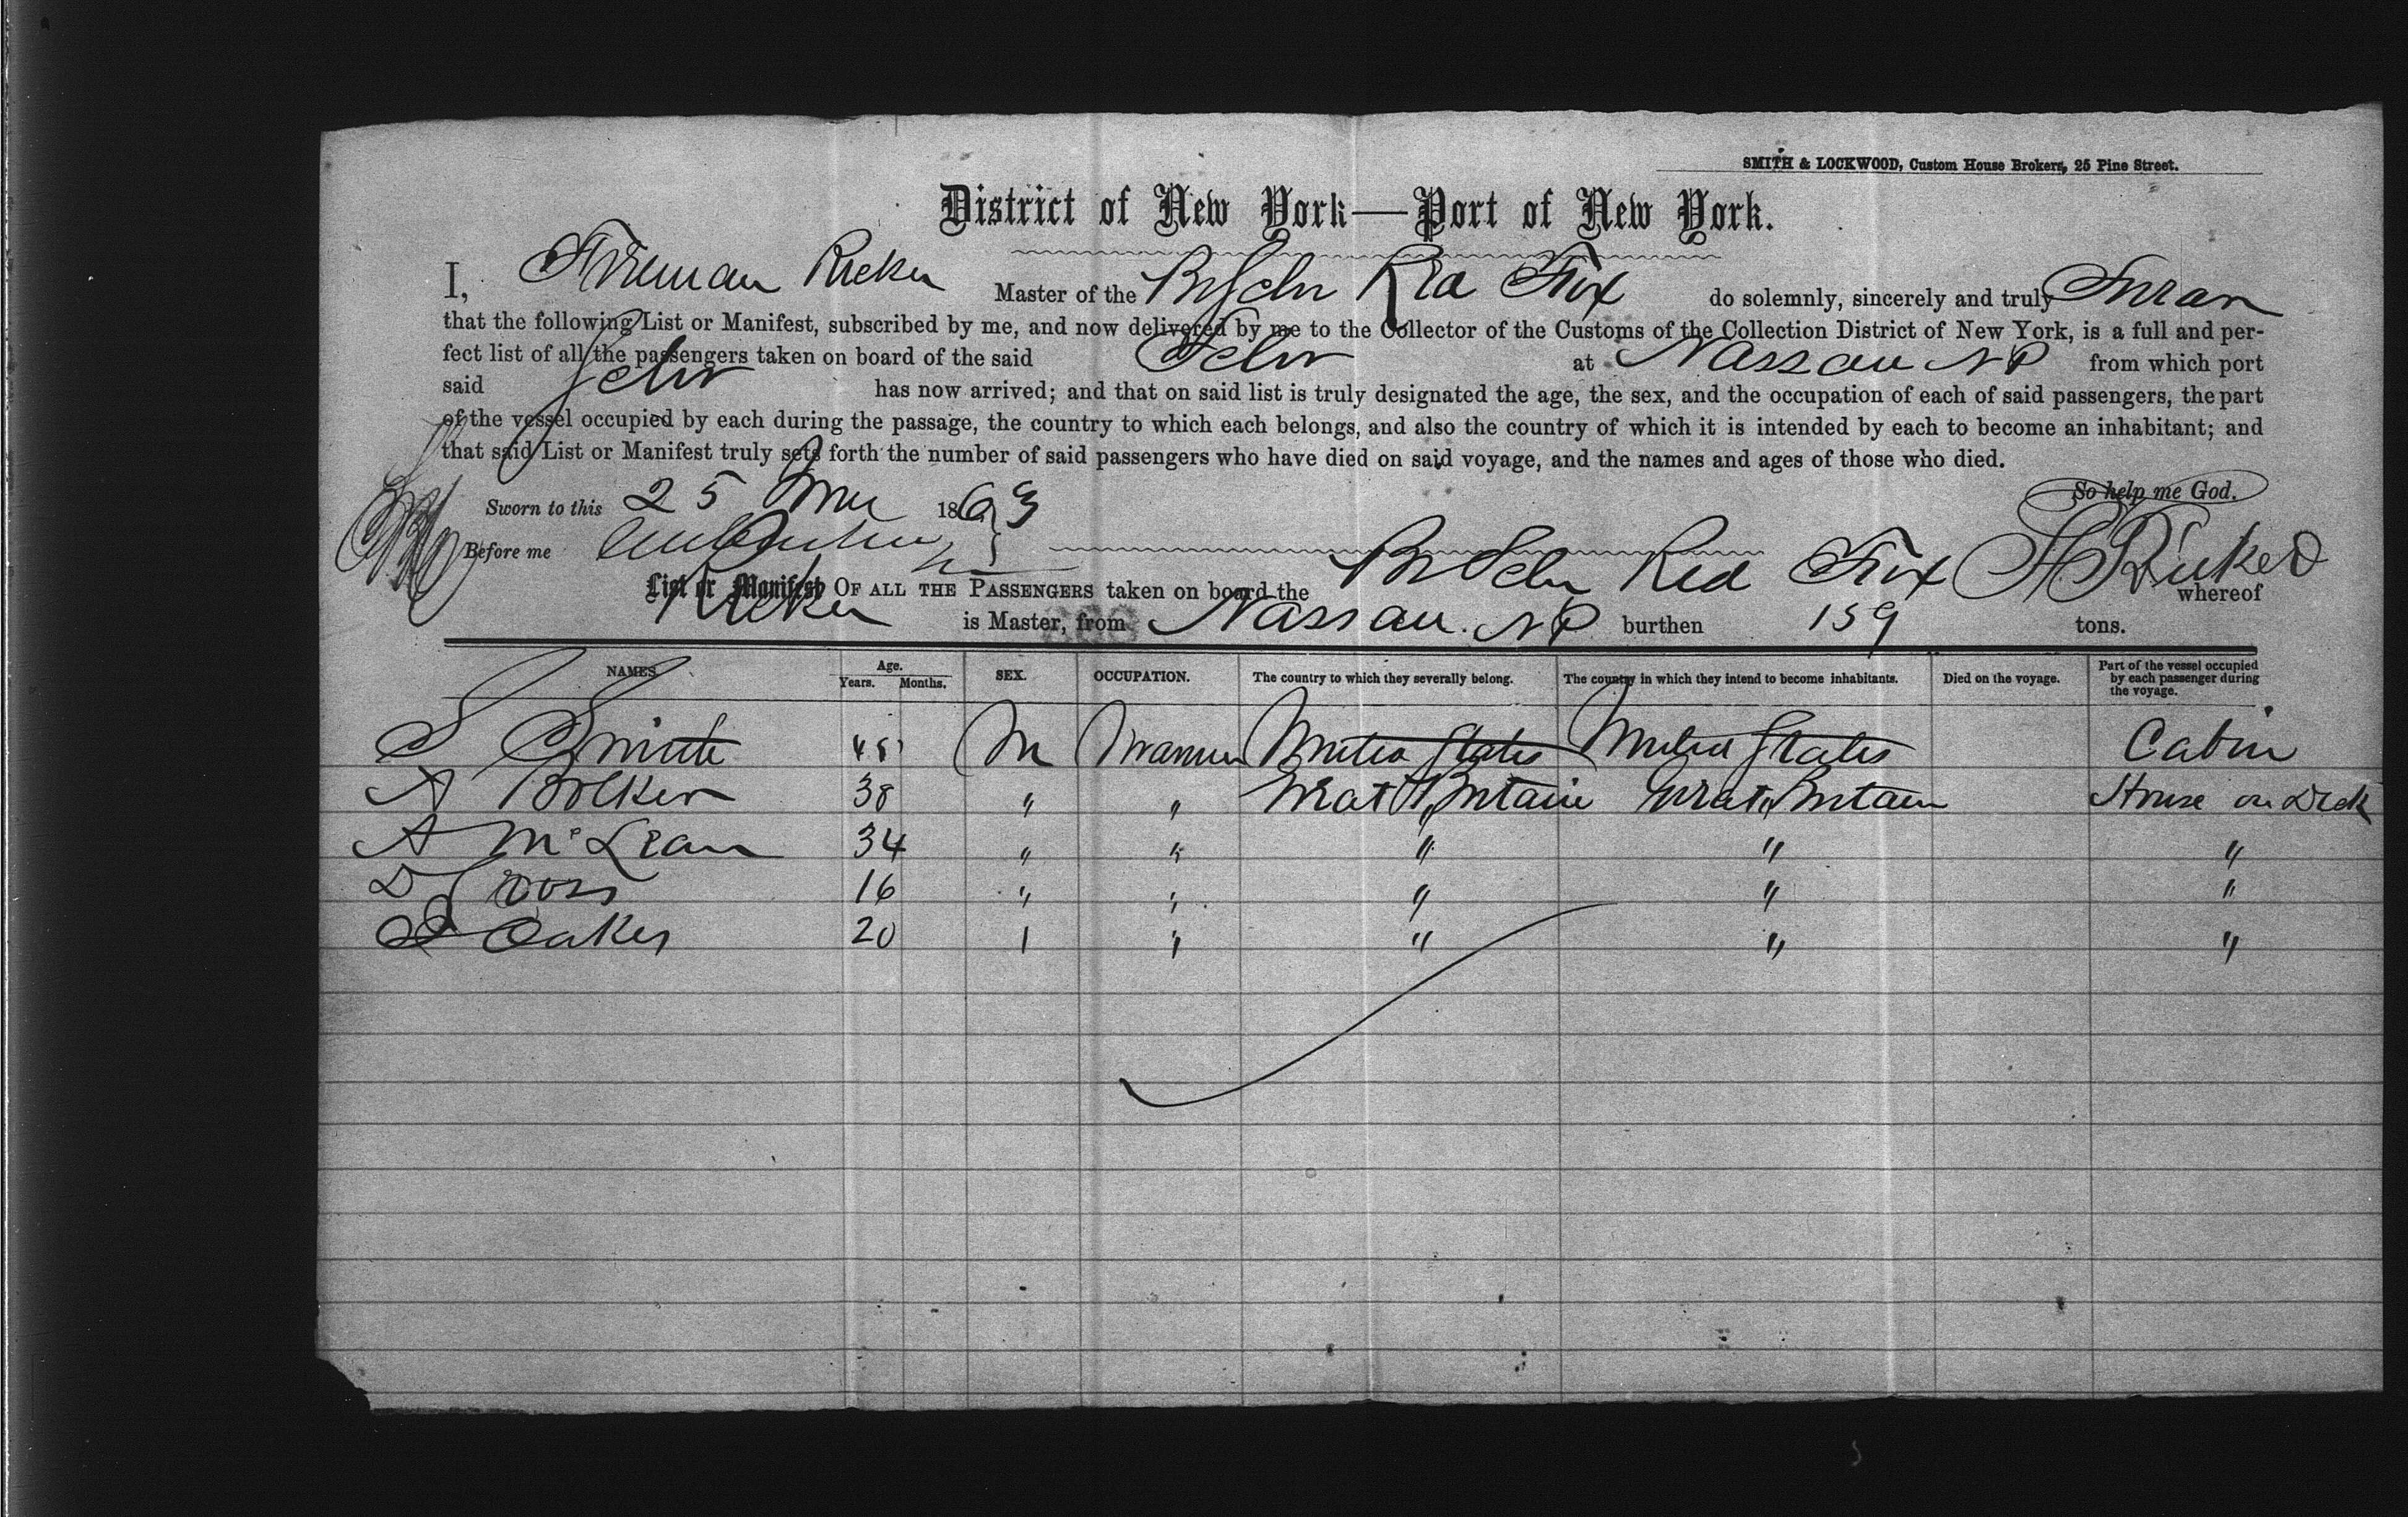 SMITH & LOCKWOOD, Custom House Brokers, 25 Pine Street.
District of New York—Port of New York.
I, Freeman Ricker Master of the Br Schr Red Fox do solemnly, sincerely and truly Swear
that the following List or Manifest, subscribed by me, and now delivered by me to the Collector of the Customs of the Collection District of New York, is a full and per-
fect list of all the passengers taken on board of the said Schr at Nassau NP from which port
said Schr has now arrived; and that on said list is truly designated the age, the sex, and the occupation of each of said passengers, the part
of the vessel occupied by each during the passage, the country to which each belongs, and also the country of which it is intended by each to become an inhabitant; and
that said List or Manifest truly sets forth the number of said passengers who have died on said voyage, and the names and ages of those who died.
So help me God.
Sworn to this 25 1863
Before me
List or Manifest OF ALL THE PASSENGERS taken on board the Br Schr Red Fox whereof
Ricker is Master, from Nassau. NP burthen 159 tons.
NAMES. Age. Years. Months. SEX. OCCUPATION. The country to which they severally belong. The country in which they intend to become inhabitants. Died on the voyage. Part of the vessel occupied by each passenger during the voyage.
S Smith 45 M Mariner United States United States Cabin
A 38 " " Great Britain Great Britain House on Deck
A McLean 34 " " " " "
D Cross 16 " " " " "
Oakes 20 " " " " "